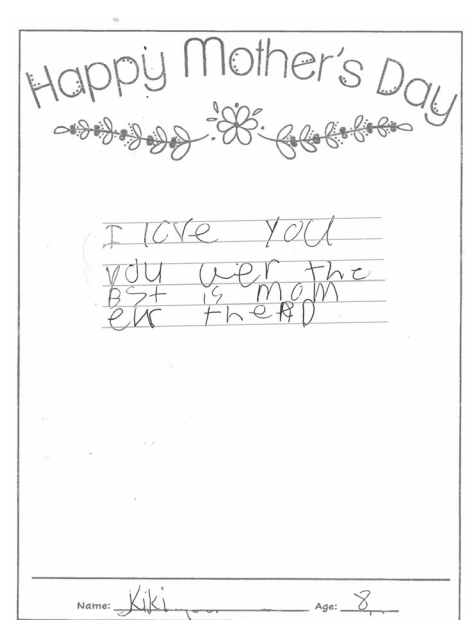 Happy Mother's Day
I love you
you wer the
Bst is mom
eur theAD
Name: Kiki
Age: 8